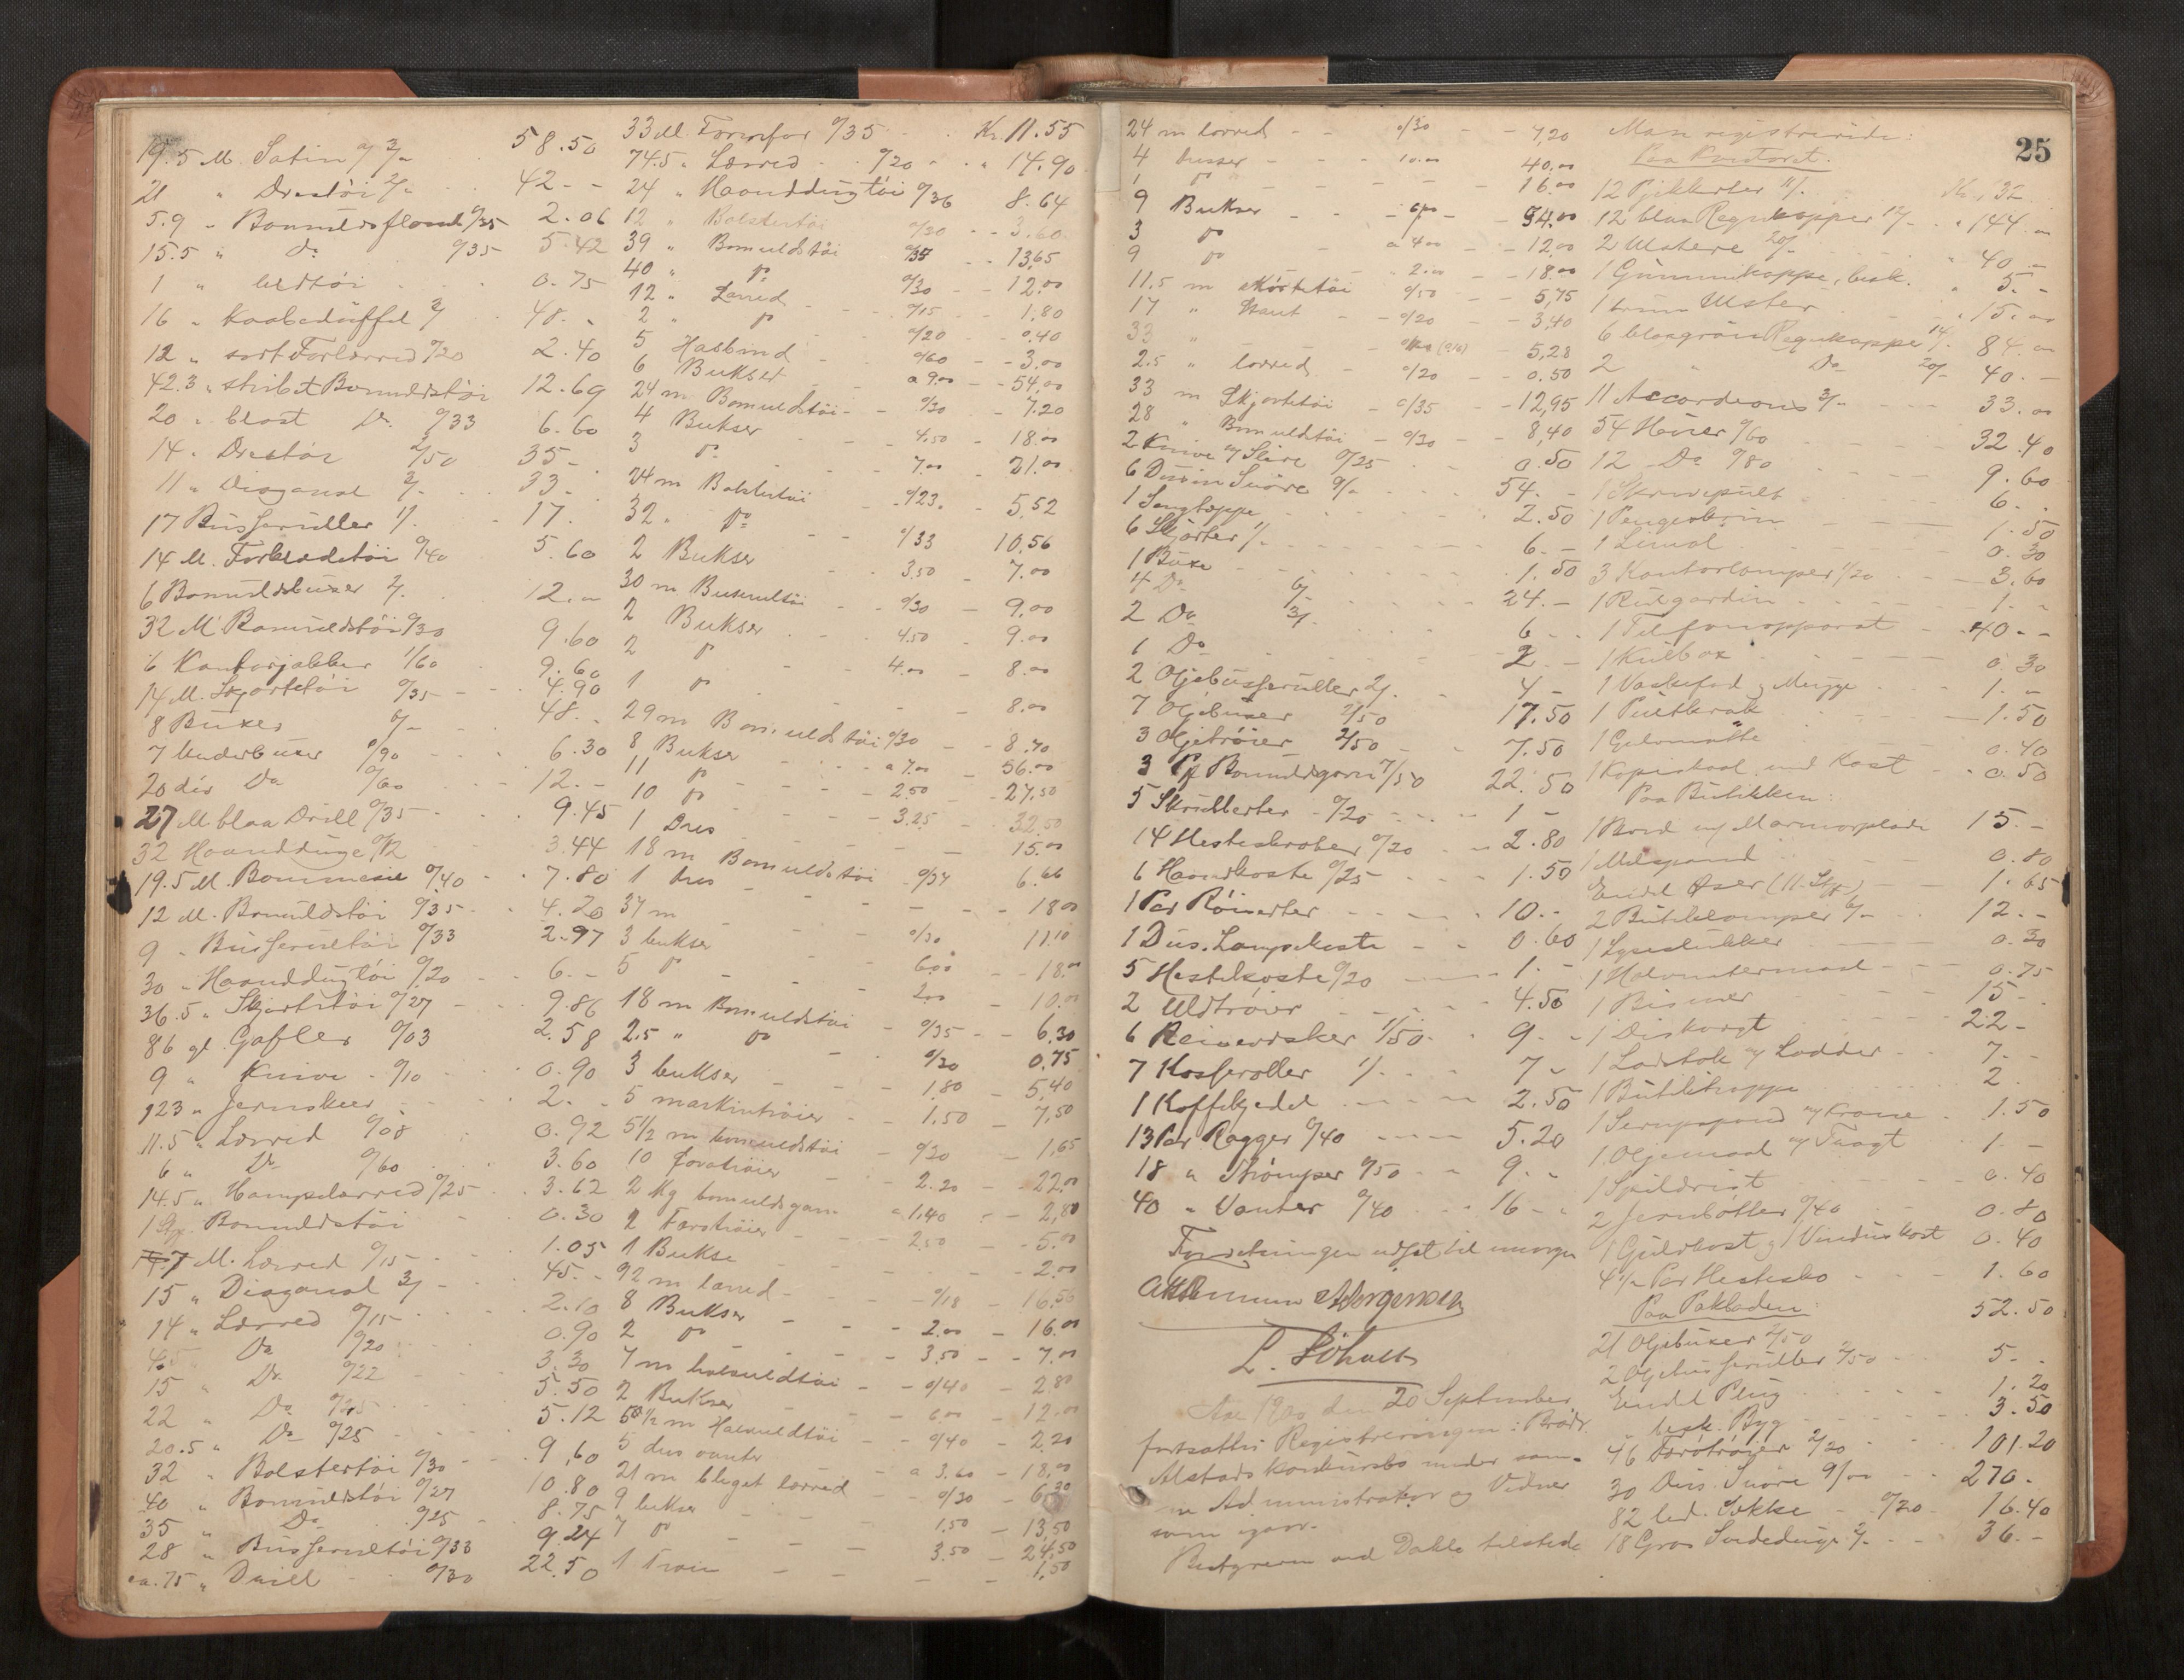 19.5 M. Satin a 3/- 58.50
21 " Drestöi 2/- 42 - -
5.9 " Bomuldsflonel 0/35 2.06
15.5 " Do 0/35 5.42
1 " 0.75
16 " Kaabedüffel 3/ 48. -
12 " sort Forlærred 0/20 2.40
42.3 " stribet Bomuldstöi 12.69
20 " blaat Do 0/33 6.60
14 " Drestöi 2/50 35 -
11 " Diagonal 3/- 33 -
17 Busseruller 1/. 17.
14 M. Forkladetöi 0/40 5.60
6 Bomuldsbuxer 2/. 12. -
32 M Bomuldstöi 0/30 9.60
6 Kontorjakker 1/60 9.60
14 M. Skjortetöi 0/35 4.90
8 Buxer 6/- 48. -
7 Underbuxer 0/90 6.30
20 div Do 0/60 12. -
27 M. blaa Drill 0/35 9.45
32 Haandduge 0/12 3.44
19.5 M. Bommesie 0/40 7.80
12 M. Bomuldstöi 0/35 4.20
9 " Busserultöi 0/33 2.97
30 " Haanddugtöi 0/20 6. -
36.5 " Skjortetöi 0/27 9.86
86 gl. Gafler 0/03 2.58
9 " Knive 0/10 0.90
123 " Jernskeer 2. -
11.5 " Lærred 0/08 0.92
6 " Do 0/60 3.60
14.5 " Hampelærred 0/25 3.62
1 Stk. Bomuldstöi 0.30
7 M. Lærred 0/15 1.05
15 " Diagonal 3/ 45. -
14 " Lærred 0/15 2.10
4.5 " Do 0/20 0.90
15 " Do 0/22 3.30
22 " Do 0/25 5.50
20.5 " Do 0/25 5.12
32 " Bolstertöi 0/30 9,60
40 " Bomuldstöi 0/27 10.80
35 " Do 0/25 8.75
28 " Busserultöi 0/33 9.24
ca. 75 " Drill 0/30 22.50
33 M. 0/35 Kr 11.55
74.5 " Lærred 0/20 " 14.90
24 " Haanddugtöi 0/36 8.64
12 " Bolstertöi 0/30 3.60
39 " Bomuldstöi 0/35 13,65
40 " do 0/30 12,00
12 " Lærred 0/15 1,80
2 " do 0/20 0,40
5 Halsbind 0/60 3,00
6 Bukser a 9.00 54,00
24 m Bomuldstöi 0/30 7.20
4 Bukser 4.50 18.00
3 do 7.00 21.00
24 m Bolstertöi 0/23 5,52
32 " do 0/33 10,56
2 Bukser 3.50 7.00
30 m Busserultöi 0/30 9,00
2 Bukser 4.50 9.00
2 do 4.00 8.00
1 do 8.00
29 m Bomuldstöi 0/30 8.70
8 Bukser a 7.00 56.00
11 do 2.50 27,50
10 do 3.25 32,50
1 Dres 15.00
18 m Bomuldstöi 0/37 6.66
1 dres 18.00
37 m 0/30 11.10
3 bukser 6.00 18.00
5 do 2.00 10.00
18 m Bomuldstöi 0/35 6,30
2.5 " do 0/30 0.75
3 bukser 1,80 5,40
5 maskintröier 1.50 7,50
5 1/2 m bomuldstöi 0/30 1,65
10 2.20 22.00
2 kg bomuldsgarn a 1,40 2,80
2 Færötröier 2.50 5.00
1 Bukse 2.00
92 m lærred 0/18 16,56
8 Bukser 2.00 16.00
2 do 3,50 7.00
7 m halvuldtöi 0/40 2.80
2 Bukser 6.00 12.00
5 1/2 m Halvuldtöi 0/40 2.20
5 dus vanter a 3.60 18,00
21 m bleget lærred 0/30 6,30
9 bukser 1,50 13,50
7 do 3.50 24,50
1 Tröie 1,50
24 m lærred 0/30 7,20
4 busser 10.00 40.00
1 do 16.00
9 Bukser 6.00 54.00
3 do a 4.00 12,00
9 do 2.00 18.00
11,5 m skörtetöi 0/50 5,75
17 " Stout 0/20 3,40
33 " 5,28
2.5 " lærred 0/20 0.50
33 m Skjortetöi 0/35 12,95
28 " Bomuldstöi 0/30 8,40
2 Knive m/ Slire 0/25 0.50
6 Dusin Snöre 9/- 54. -
1 Sengtæppe 2.50
6 Skjorter 1/- 6. -
1 Buxe 1.50
4 Do 6/- 24. -
2 Do 3/ 6 -
1 Do 2 -
2 Oljebusseruller 2/. 4 -
7 Oljebuxer 2/50 17.50
3 Oljetröier 2/50 7.50
3 Pk Bomuldsgarn 7/50 22.50
5 Skrubberter 0/20 1 -
14 Hesteskraber 0/20 2.80
6 Haandkoste 0/25 1.50
1 Par 10. -
1 Dus. Lampekoste 0.60
5 Hestekoste 0/20 1. -
2 Uldtröier 4.50
6 1/50 9. -
7 Kasseroller 1/. 7 -
1 Kaffekjedel 2.50
13 Par Ragger 0/40 5.20
18 " Strömper 0/50 9. -
40 " Vanter 0/40 16 -
Forretningen udsat til imorgen
L. Söholt
Aar 1900 den 20 September
fortsattes Registreringen i Brödr.
Alstads Konkursbo under sam-
me Administrator og Vidner
som igaar.
Butgreven ved Dahle tilstede
25
Man registrerede:
Paa Kontoret.
12 Pjekkerter 11/. Kr. 132
12 blaa Regnkapper 12/- " 144. -
2 Ulstere 20/- 40 -
1 Gummikappe, besk. 5. -
1 brun Ulster 15. -
6 blaagröne Regnkapper 14/. 84. -
2 " Do 20/- 40. -
11 Accordeons 3/- 33. -
54 Huer 0/60 32.40
12 Do 0/80 9.60
1 Skrivepult 6. -
1 Pengeskrin 1.50
1 Lineal 0.30
3 Kontorlamper 1/20 3.60
1 Rulgardin 1. -
1 Telefonapparat 40 - -
1 Kulbox 0.30
1 Vaskefad og Mugge 1. -
1 Pultkrak 1.50
1 Gulvmatte 0.40
1 Kopiskaal med Kost 0.50
Paa Butikken:
1 Bord m/ Marmorplade 15. -
1 Melspand 0.80
Endel Öser (11 Stk) 1.65
2 Butiklamper 6/- 12. -
1 Lyseslukker 0.30
1 Halvmetermaal 0.75
1 Bismer 15 -
1 Diskvægt 22 -
1 Ladstok m/ Ladder 7. -
1 Butiktrappe 2.
1 Serupspand m/ Krane 1.50
1 Oljemaal m/ Tragt 1. -
1 Spildrist 0.40
2 Jernbötter 0/40 0.80
1 Gulvkost og 1 Vinduskost 0.40
4 1/2 Par Hestesko 1.60
Paa Pakboden:
21 Oljebuxer 2/50 52.50
2 Oljebusseruller 2/50 5. -
Endel Plug 1.20
" besk. Byg 3.50
46 Færötröier 2/20 101.20
30 Dus. Snöre 9/00 270 -
82 led. Sække 0/20 16.40
18 Gros 2/- 36. -